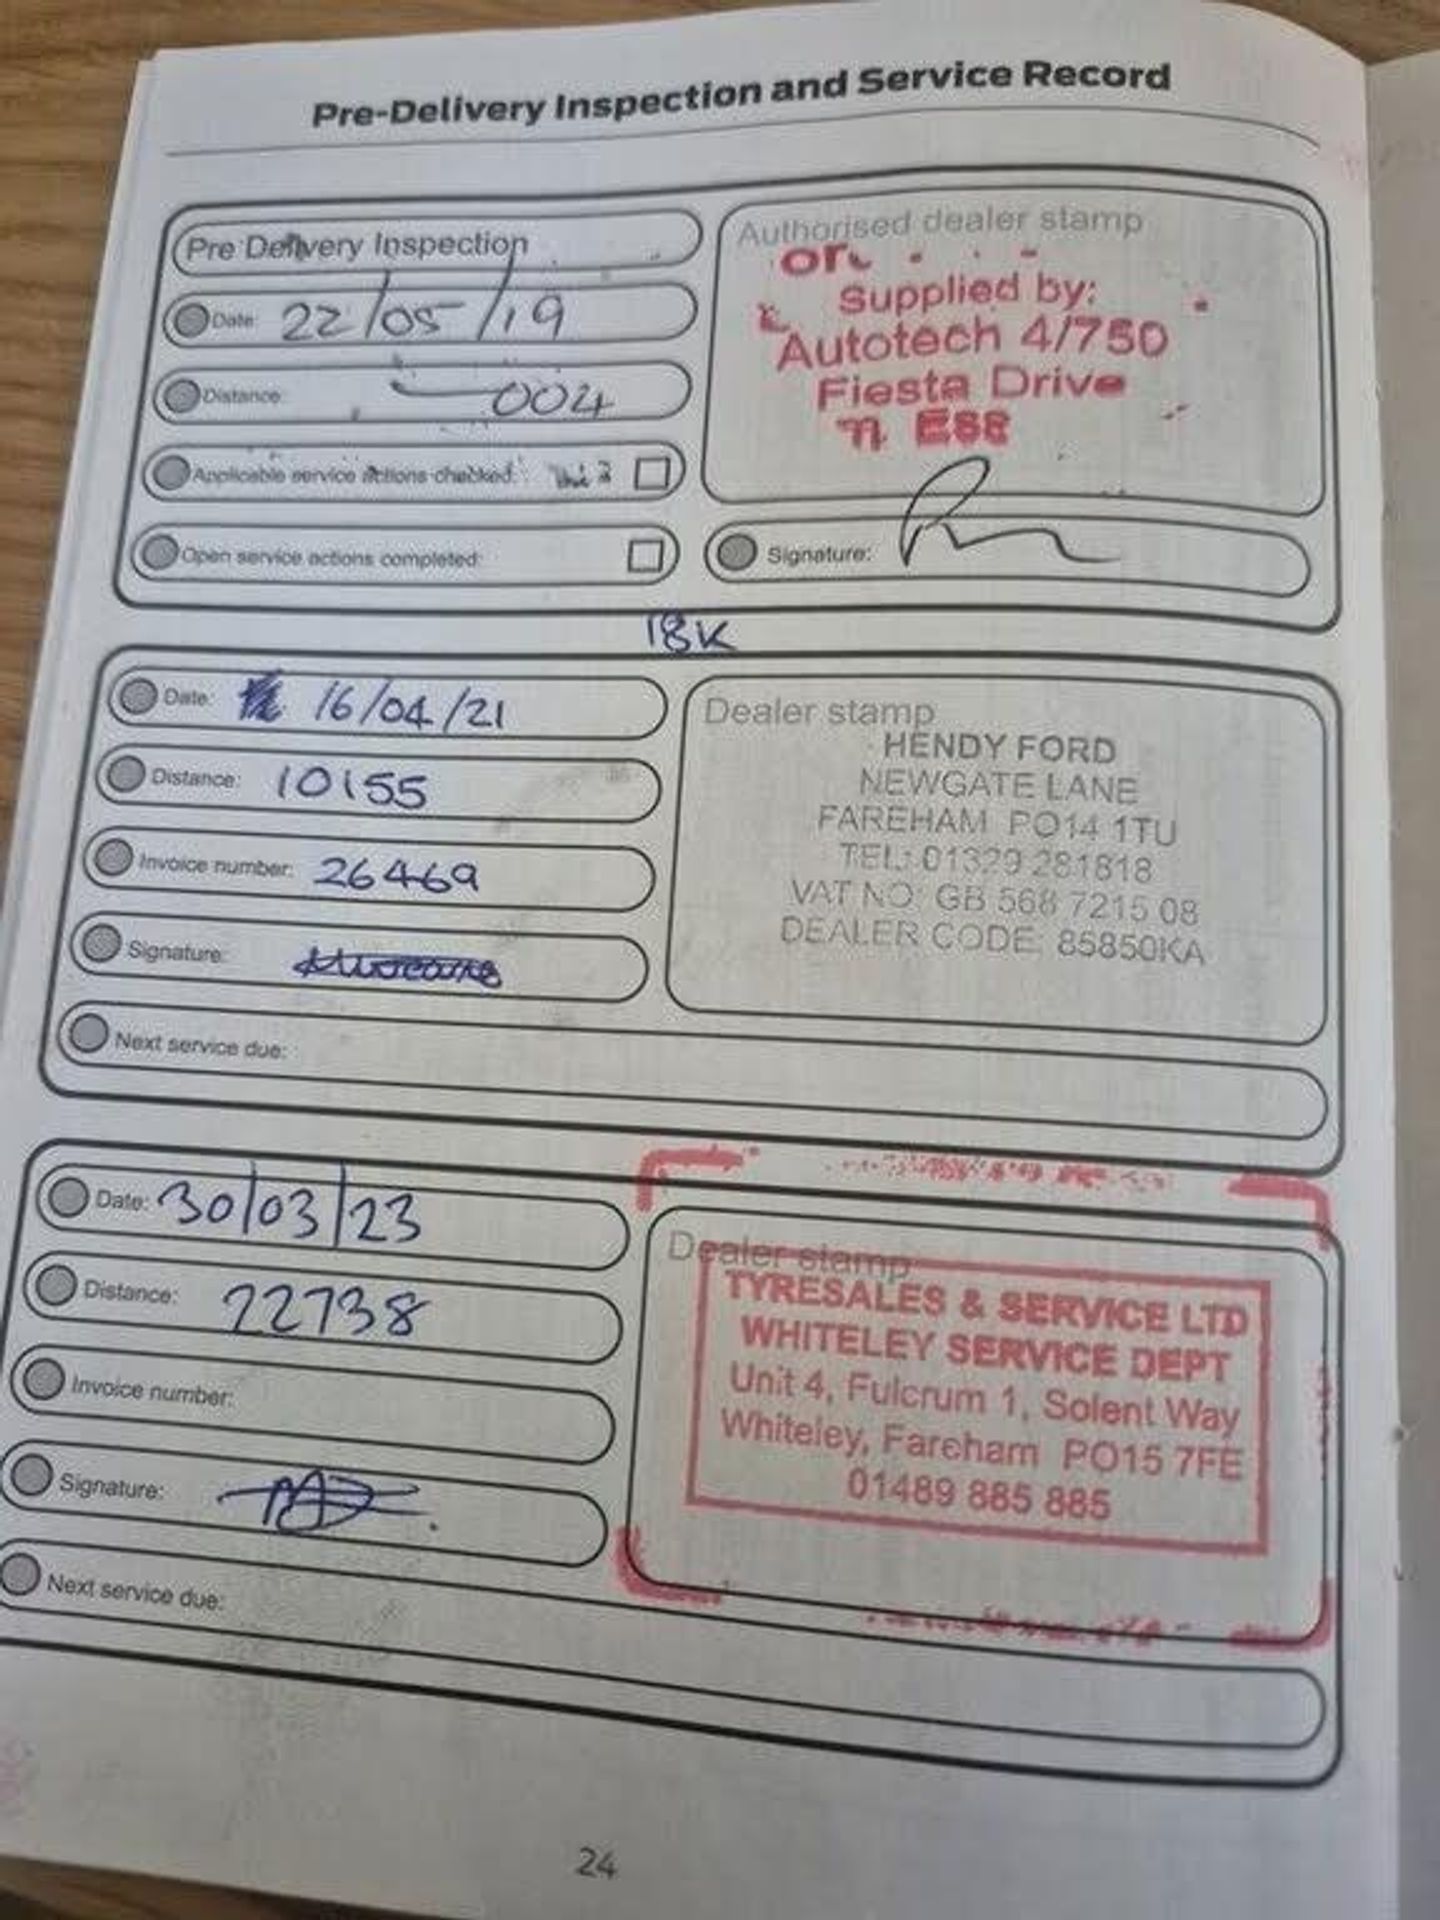 Pre-Delivery Inspection and Service Record
Pre Delivery Inspection
Date: 22/05/19
Distance: 004
Applicable service actions checked:
Open service actions completed:
Authorised dealer stamp
Supplied by:
Autotech 4/750
Fiesta Drive
Signature:
18K
Date: 16/04/21
Distance: 10155
Invoice number: 26469
Signature:
Next service due:
Dealer stamp
HENDY FORD
NEWGATE LANE
FAREHAM PO14 1TU
TEL: 01329 281818
VAT NO: GB 568 7215 08
DEALER CODE: 85850KA
Date: 30/03/23
Distance: 22738
Invoice number:
Signature:
Next service due:
Dealer stamp
TYRESALES & SERVICE LTD
WHITELEY SERVICE DEPT
Unit 4, Fulcrum 1, Solent Way
Whiteley, Fareham PO15 7FE
01489 885 885
24